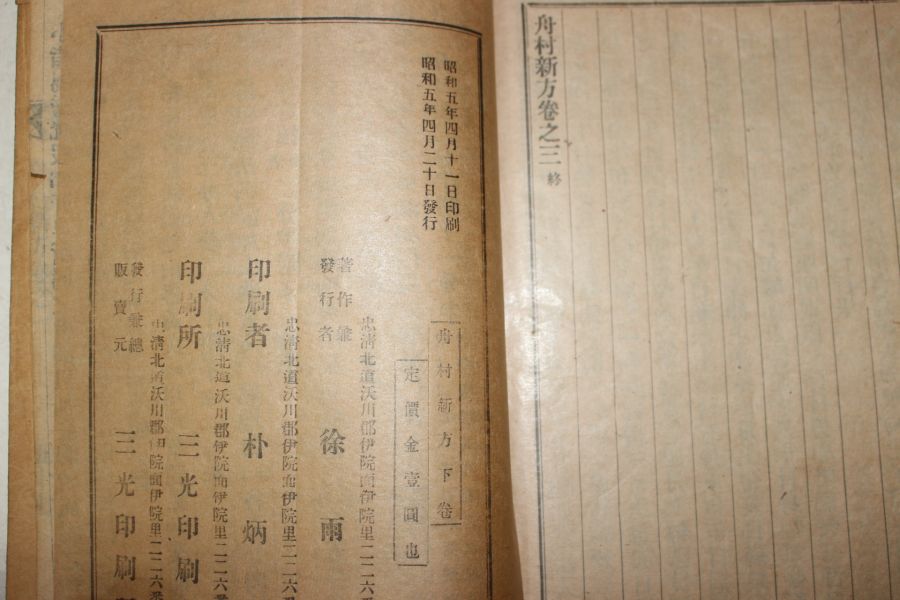 舟村新方卷之三 終
昭和五年四月十一日印刷
昭和五年四月二十日發行
舟村新方下卷
定價金壹圓也
忠淸北道沃川郡伊院面伊院里二二六
著作兼
發行者 徐 雨
忠淸北道沃川郡伊院面伊院里二二六番
印刷者 朴 炳
忠淸北道沃川郡伊院面伊院里二二六
印刷所 三光印刷
忠淸北道沃川郡伊院面伊院里二二六番
發行兼總
販賣元 三光印刷